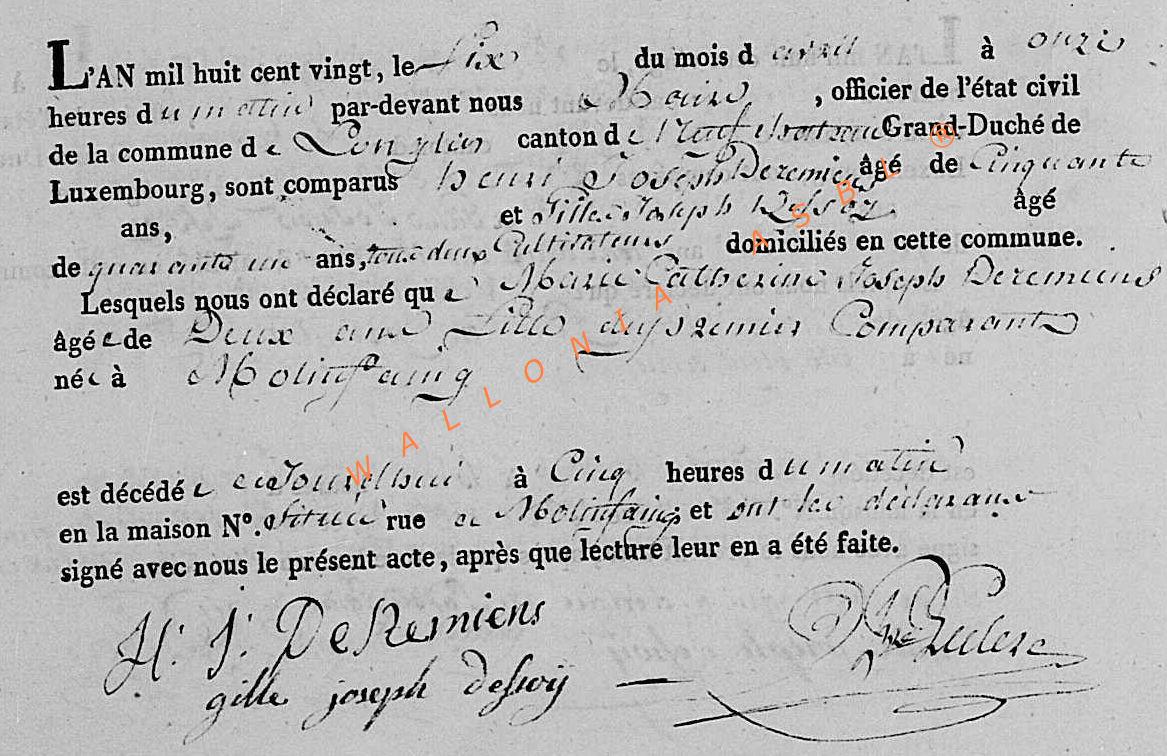 L'AN mil huit cent vingt, le Six du mois d avril à onze
heures du matin par-devant nous Maire, officier de l'état civil
de la commune de Longlier canton de Neufchateau Grand-Duché de
Luxembourg, sont comparus henri Joseph Deremiens âgé de Cinquante
ans, et Gille Joseph Dessoy âgé
de quarante un ans, tous deux Cultivateurs domiciliés en cette commune.
Lesquels nous ont déclaré que Marie Catherine Joseph Deremiens
âgée de Deux ans fille du premier Comparant
née à Molinfaing
est décédée ce Jourdhui à Cinq heures du matin
en la maison N°. située rue a Molinfaing et ont les déclarans
signé avec nous le présent acte, après que lecture leur en a été faite.
H. J. DeRemiens
gille joseph dessoÿ Leclerc
WALLONIA ASBL ®